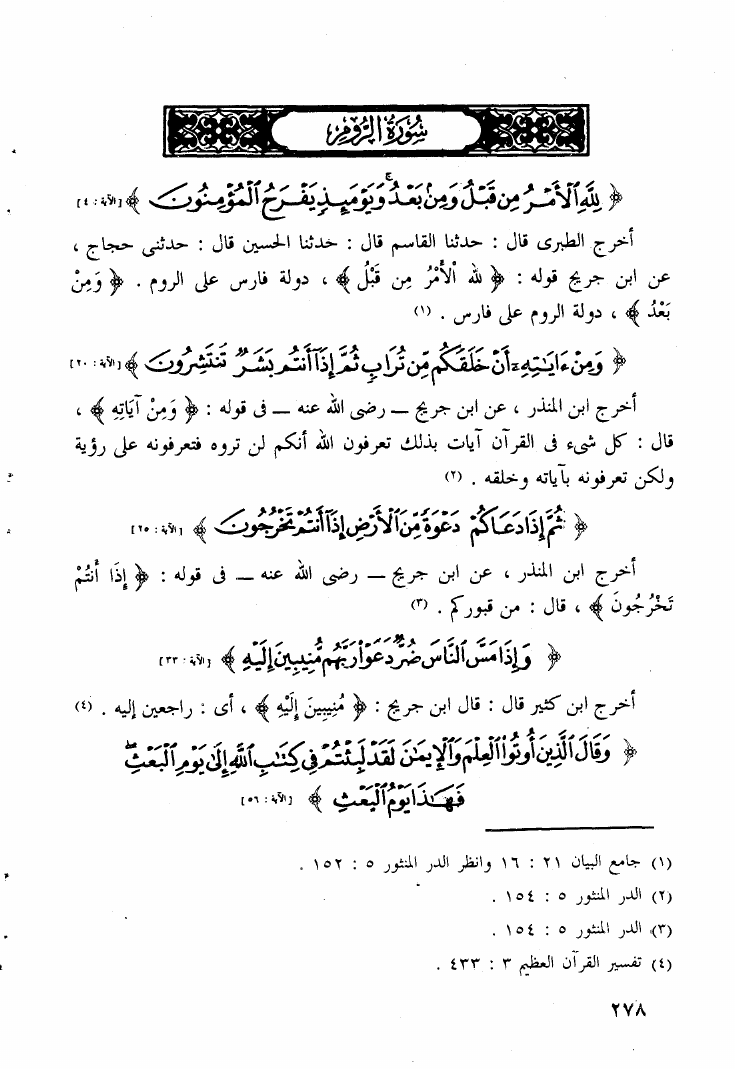 سُورَةُ الرُّومِ
﴿ لِلَّهِ ٱلْأَمْرُ مِن قَبْلُ وَمِنۢ بَعْدُ وَيَوْمَئِذٍ يَفْرَحُ ٱلْمُؤْمِنُونَ ﴾ [الآية : ٤]
أخرج الطبرى قال : حدثنا القاسم قال : حدثنا الحسين قال : حدثنى حجاج ،
عن ابن جريج قوله : ﴿ لله الْأَمْرُ مِن قَبْلُ ﴾ ، دولة فارس على الروم . ﴿ وَمِنْ
بَعْدُ ﴾ ، دولة الروم على فارس . (١)
﴿ وَمِنْ ءَايَٰتِهِۦٓ أَنْ خَلَقَكُم مِّن تُرَابٍ ثُمَّ إِذَآ أَنتُم بَشَرٌ تَنتَشِرُونَ ﴾ [الآية : ٢٠]
أخرج ابن المنذر ، عن ابن جريج ــ رضى الله عنه ــ فى قوله : ﴿ وَمِنْ آيَاتِهِ ﴾ ،
قال : كل شىء فى القرآن آيات بذلك تعرفون الله أنكم لن تروه فتعرفونه على رؤية
ولكن تعرفونه بآياته وخلقه . (٢)
﴿ ثُمَّ إِذَا دَعَاكُمْ دَعْوَةً مِّنَ ٱلْأَرْضِ إِذَآ أَنتُمْ تَخْرُجُونَ ﴾ [الآية : ٢٥]
أخرج ابن المنذر ، عن ابن جريج ــ رضى الله عنه ــ فى قوله : ﴿ إِذَا أَنتُمْ
تَخْرُجُونَ ﴾ ، قال : من قبوركم . (٣)
﴿ وَإِذَا مَسَّ ٱلنَّاسَ ضُرٌّ دَعَوْا۟ رَبَّهُم مُّنِيبِينَ إِلَيْهِ ﴾ [الآية : ٣٣]
أخرج ابن كثير قال : قال ابن جريج : ﴿ مُنِيبِينَ إِلَيْهِ ﴾ ، أى : راجعين إليه . (٤)
﴿ وَقَالَ ٱلَّذِينَ أُوتُوا۟ ٱلْعِلْمَ وَٱلْإِيمَٰنَ لَقَدْ لَبِثْتُمْ فِى كِتَٰبِ ٱللَّهِ إِلَىٰ يَوْمِ ٱلْبَعْثِ ۖ
فَهَٰذَا يَوْمُ ٱلْبَعْثِ ﴾ [الآية : ٥٦]
(١) جامع البيان ٢١ : ١٦ وانظر الدر المنثور ٥ : ١٥٢ .
(٢) الدر المنثور ٥ : ١٥٤ .
(٣) الدر المنثور ٥ : ١٥٤ .
(٤) تفسير القرآن العظيم ٣ : ٤٣٣ .
٢٧٨